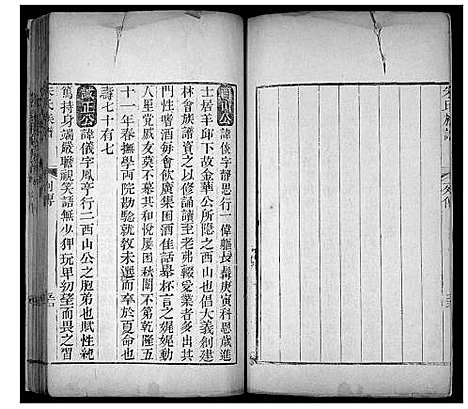 西山公諱俊字靜思行一偉軀長壽庚寅科恩歲進
士居羊邱下故金華公所隱之西山也倡大義創建
林會族諦資之以修誦讀至老弗輟愛業者多出其
門性嗜酒每會飲廣集園酒佳話舉杯言之娓娓動
人里黨戚友莫不慕其和悅屢困秋闈不第乾隆五
十一年春撫學兩院勘驗就教未選而卒於夏命也
壽七十有七
誠正公諱儀字鳳亭行二西山公之胞弟也賦性純
篤持身端嚴聽視笑語無少狎玩卑幼望而畏之習
朱氏族譜 列傳